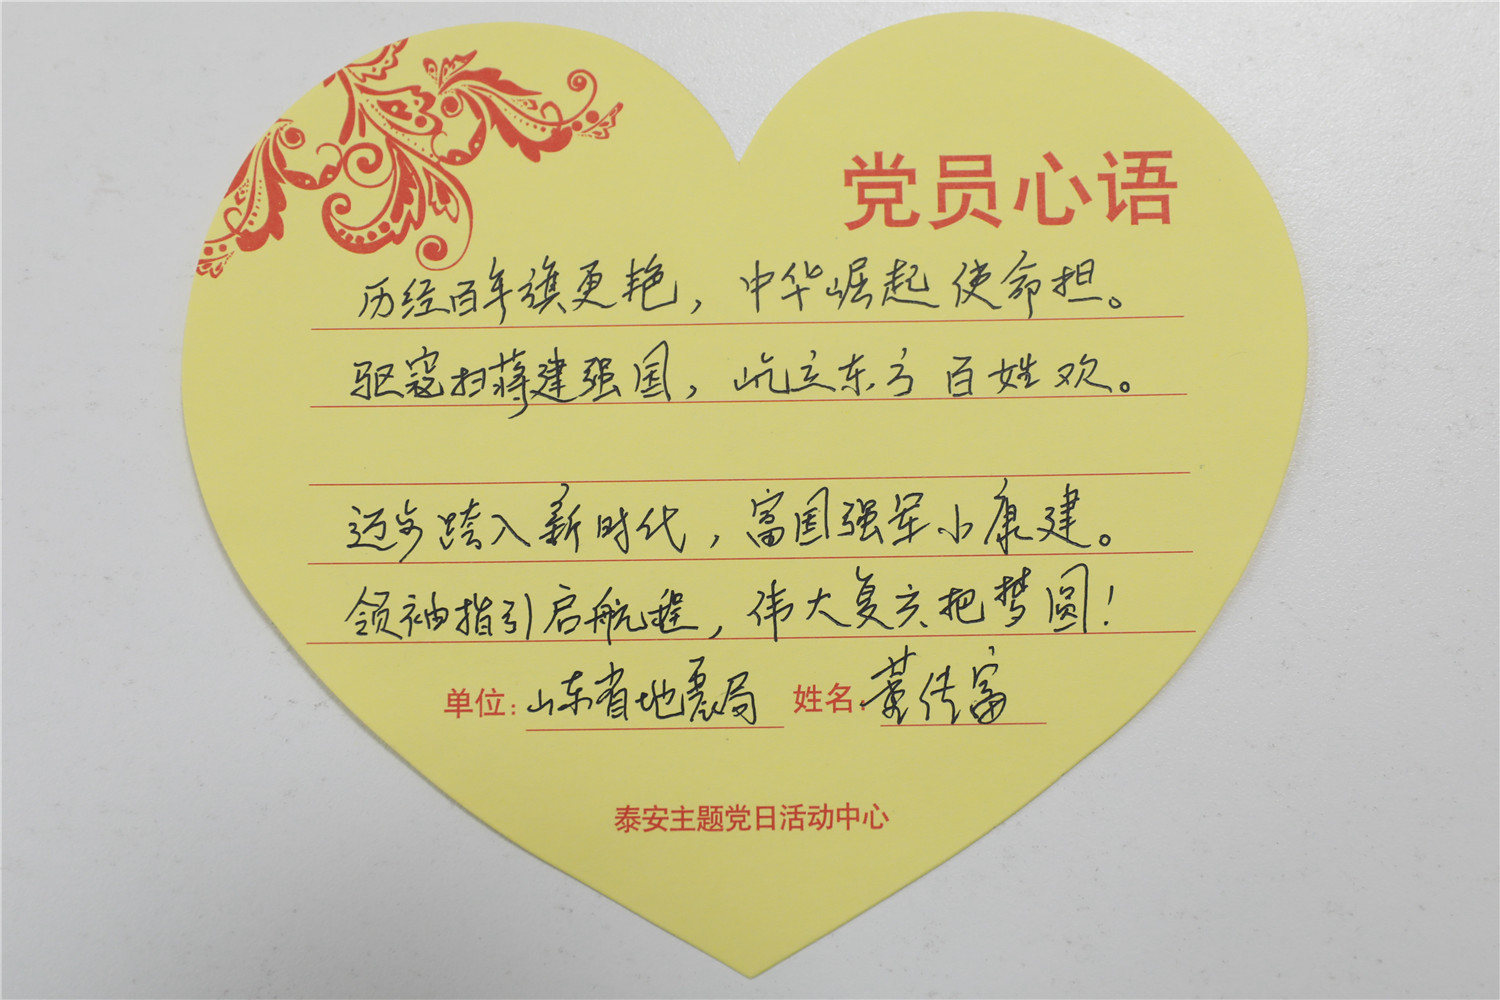 党员心语
历经百年旗更艳，中华崛起使命担。
驱寇扫蒋建强国，屹立东方百姓欢。
迈步跨入新时代，富国强军小康建。
领袖指引启航程，伟大复兴把梦圆！
单位：山东省地震局 姓名：董传富
泰安主题党日活动中心